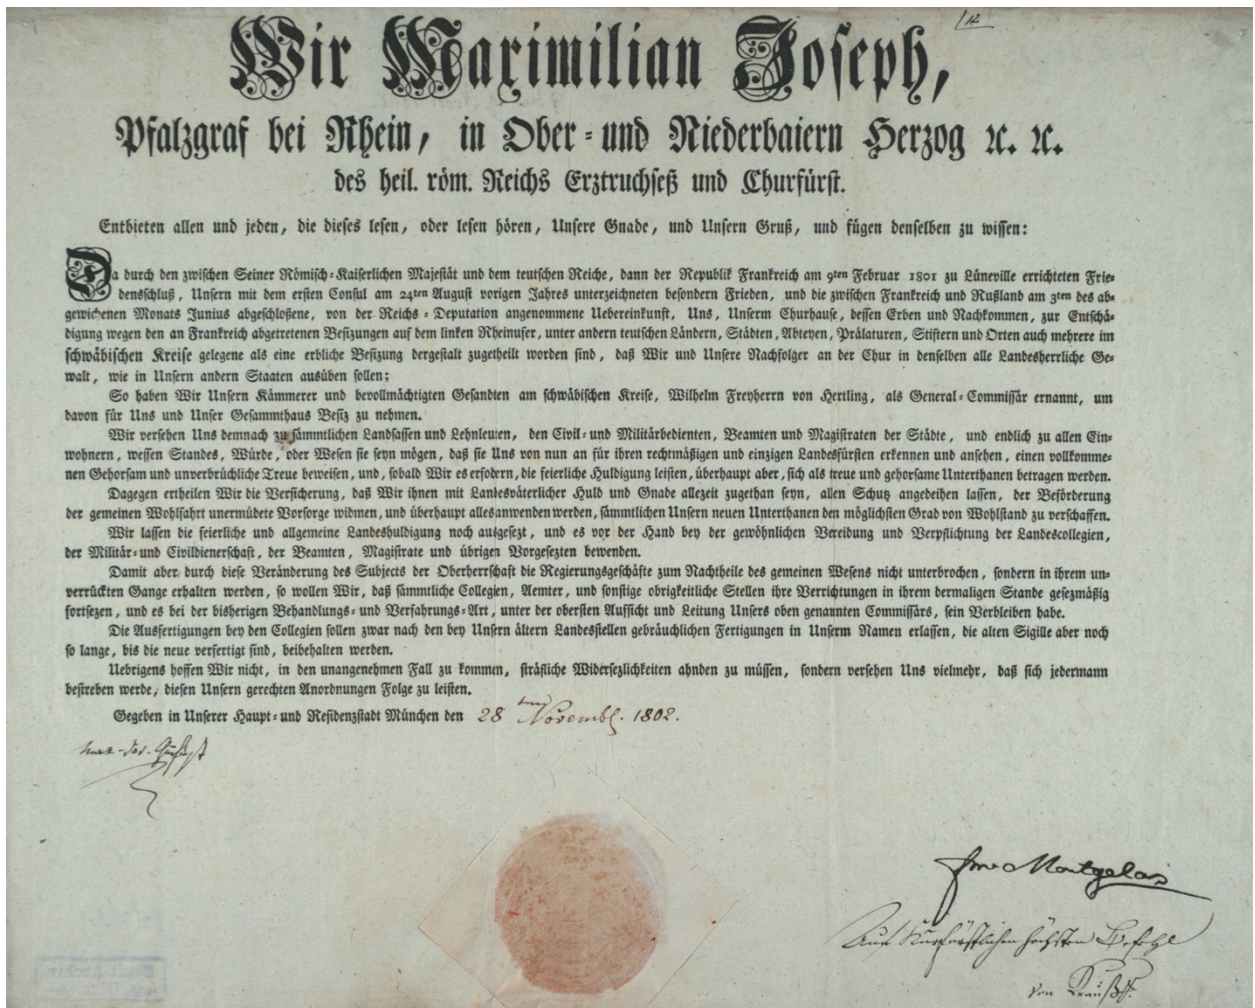 Wir Maximilian Joseph,
Pfalzgraf bei Rhein, in Ober- und Niederbaiern Herzog ꝛc. ꝛc.
des heil. röm. Reichs Erztruchseß und Churfürst.
Entbieten allen und jeden, die dieses lesen, oder lesen hören, Unsere Gnade, und Unsern Gruß, und fügen denselben zu wissen:
Da durch den zwischen Seiner Römisch-Kaiserlichen Majestät und dem teutschen Reiche, dann der Republik Frankreich am 9ten Februar 1801 zu Lüneville errichteten Frie-
densschluß, Unsern mit dem ersten Consul am 24ten August vorigen Jahres unterzeichneten besondern Frieden, und die zwischen Frankreich und Rußland am 3ten des ab-
gewichenen Monats Junius abgeschloßene, von der Reichs-Deputation angenommene Uebereinkunft, Uns, Unserm Churhause, dessen Erben und Nachkommen, zur Entschä-
digung wegen den an Frankreich abgetretenen Besizungen auf dem linken Rheinufer, unter andern teutschen Ländern, Städten, Abteyen, Prälaturen, Stiftern und Orten auch mehrere im
schwäbischen Kreise gelegene als eine erbliche Besizung dergestalt zugetheilt worden sind, daß Wir und Unsere Nachfolger an der Chur in denselben alle Landesherrliche Ge-
walt, wie in Unsern andern Staaten ausüben sollen;
So haben Wir Unsern Kämmerer und bevollmächtigten Gesandten am schwäbischen Kreise, Wilhelm Freyherrn von Hertling, als General-Commissär ernannt, um
davon für Uns und Unser Gesammthaus Besiz zu nehmen.
Wir versehen Uns demnach zu sämmtlichen Landsassen und Lehnleuten, den Civil- und Militärbedienten, Beamten und Magistraten der Städte, und endlich zu allen Ein-
wohnern, wessen Standes, Würde, oder Wesen sie seyn mögen, daß sie Uns von nun an für ihren rechtmäßigen und einzigen Landesfürsten erkennen und ansehen, einen vollkomme-
nen Gehorsam und unverbrüchliche Treue beweisen, und, sobald Wir es erfodern, die feierliche Huldigung leisten, überhaupt aber, sich als treue und gehorsame Unterthanen betragen werden.
Dagegen ertheilen Wir die Versicherung, daß Wir ihnen mit Landesväterlicher Huld und Gnade allezeit zugethan seyn, allen Schutz angedeihen lassen, der Beförderung
der gemeinen Wohlfahrt unermüdete Vorsorge widmen, und überhaupt alles anwenden werden, sämmtlichen Unsern neuen Unterthanen den möglichsten Grad von Wohlstand zu verschaffen.
Wir lassen die feierliche und allgemeine Landeshuldigung noch ausgesezt, und es vor der Hand bey der gewöhnlichen Vereidung und Verpflichtung der Landescollegien,
der Militär- und Civildienerschaft, der Beamten, Magistrate und übrigen Vorgesezten bewenden.
Damit aber durch diese Veränderung des Subjects der Oberherrschaft die Regierungsgeschäfte zum Nachtheile des gemeinen Wesens nicht unterbrochen, sondern in ihrem un-
verrückten Gange erhalten werden, so wollen Wir, daß sämmtliche Collegien, Aemter, und sonstige obrigkeitliche Stellen ihre Verrichtungen in ihrem dermaligen Stande gesezmäßig
fortsezen, und es bei der bisherigen Behandlungs- und Verfahrungs-Art, unter der obersten Aufsicht und Leitung Unsers oben genannten Commissärs, sein Verbleiben habe.
Die Ausfertigungen bey den Collegien sollen zwar nach den bey Unsern ältern Landesstellen gebräuchlichen Fertigungen in Unserm Namen erlassen, die alten Sigille aber noch
so lange, bis die neue verfertigt sind, beibehalten werden.
Uebrigens hoffen Wir nicht, in den unangenehmen Fall zu kommen, sträfliche Widersezlichkeiten ahnden zu müssen, sondern versehen Uns vielmehr, daß sich jedermann
bestreben werde, diesen Unsern gerechten Anordnungen Folge zu leisten.
Gegeben in Unserer Haupt- und Residenzstadt München den 28ten Novembr. 1802.
Montgelas
Auf Kurfürstlichen höchsten Befehl
von